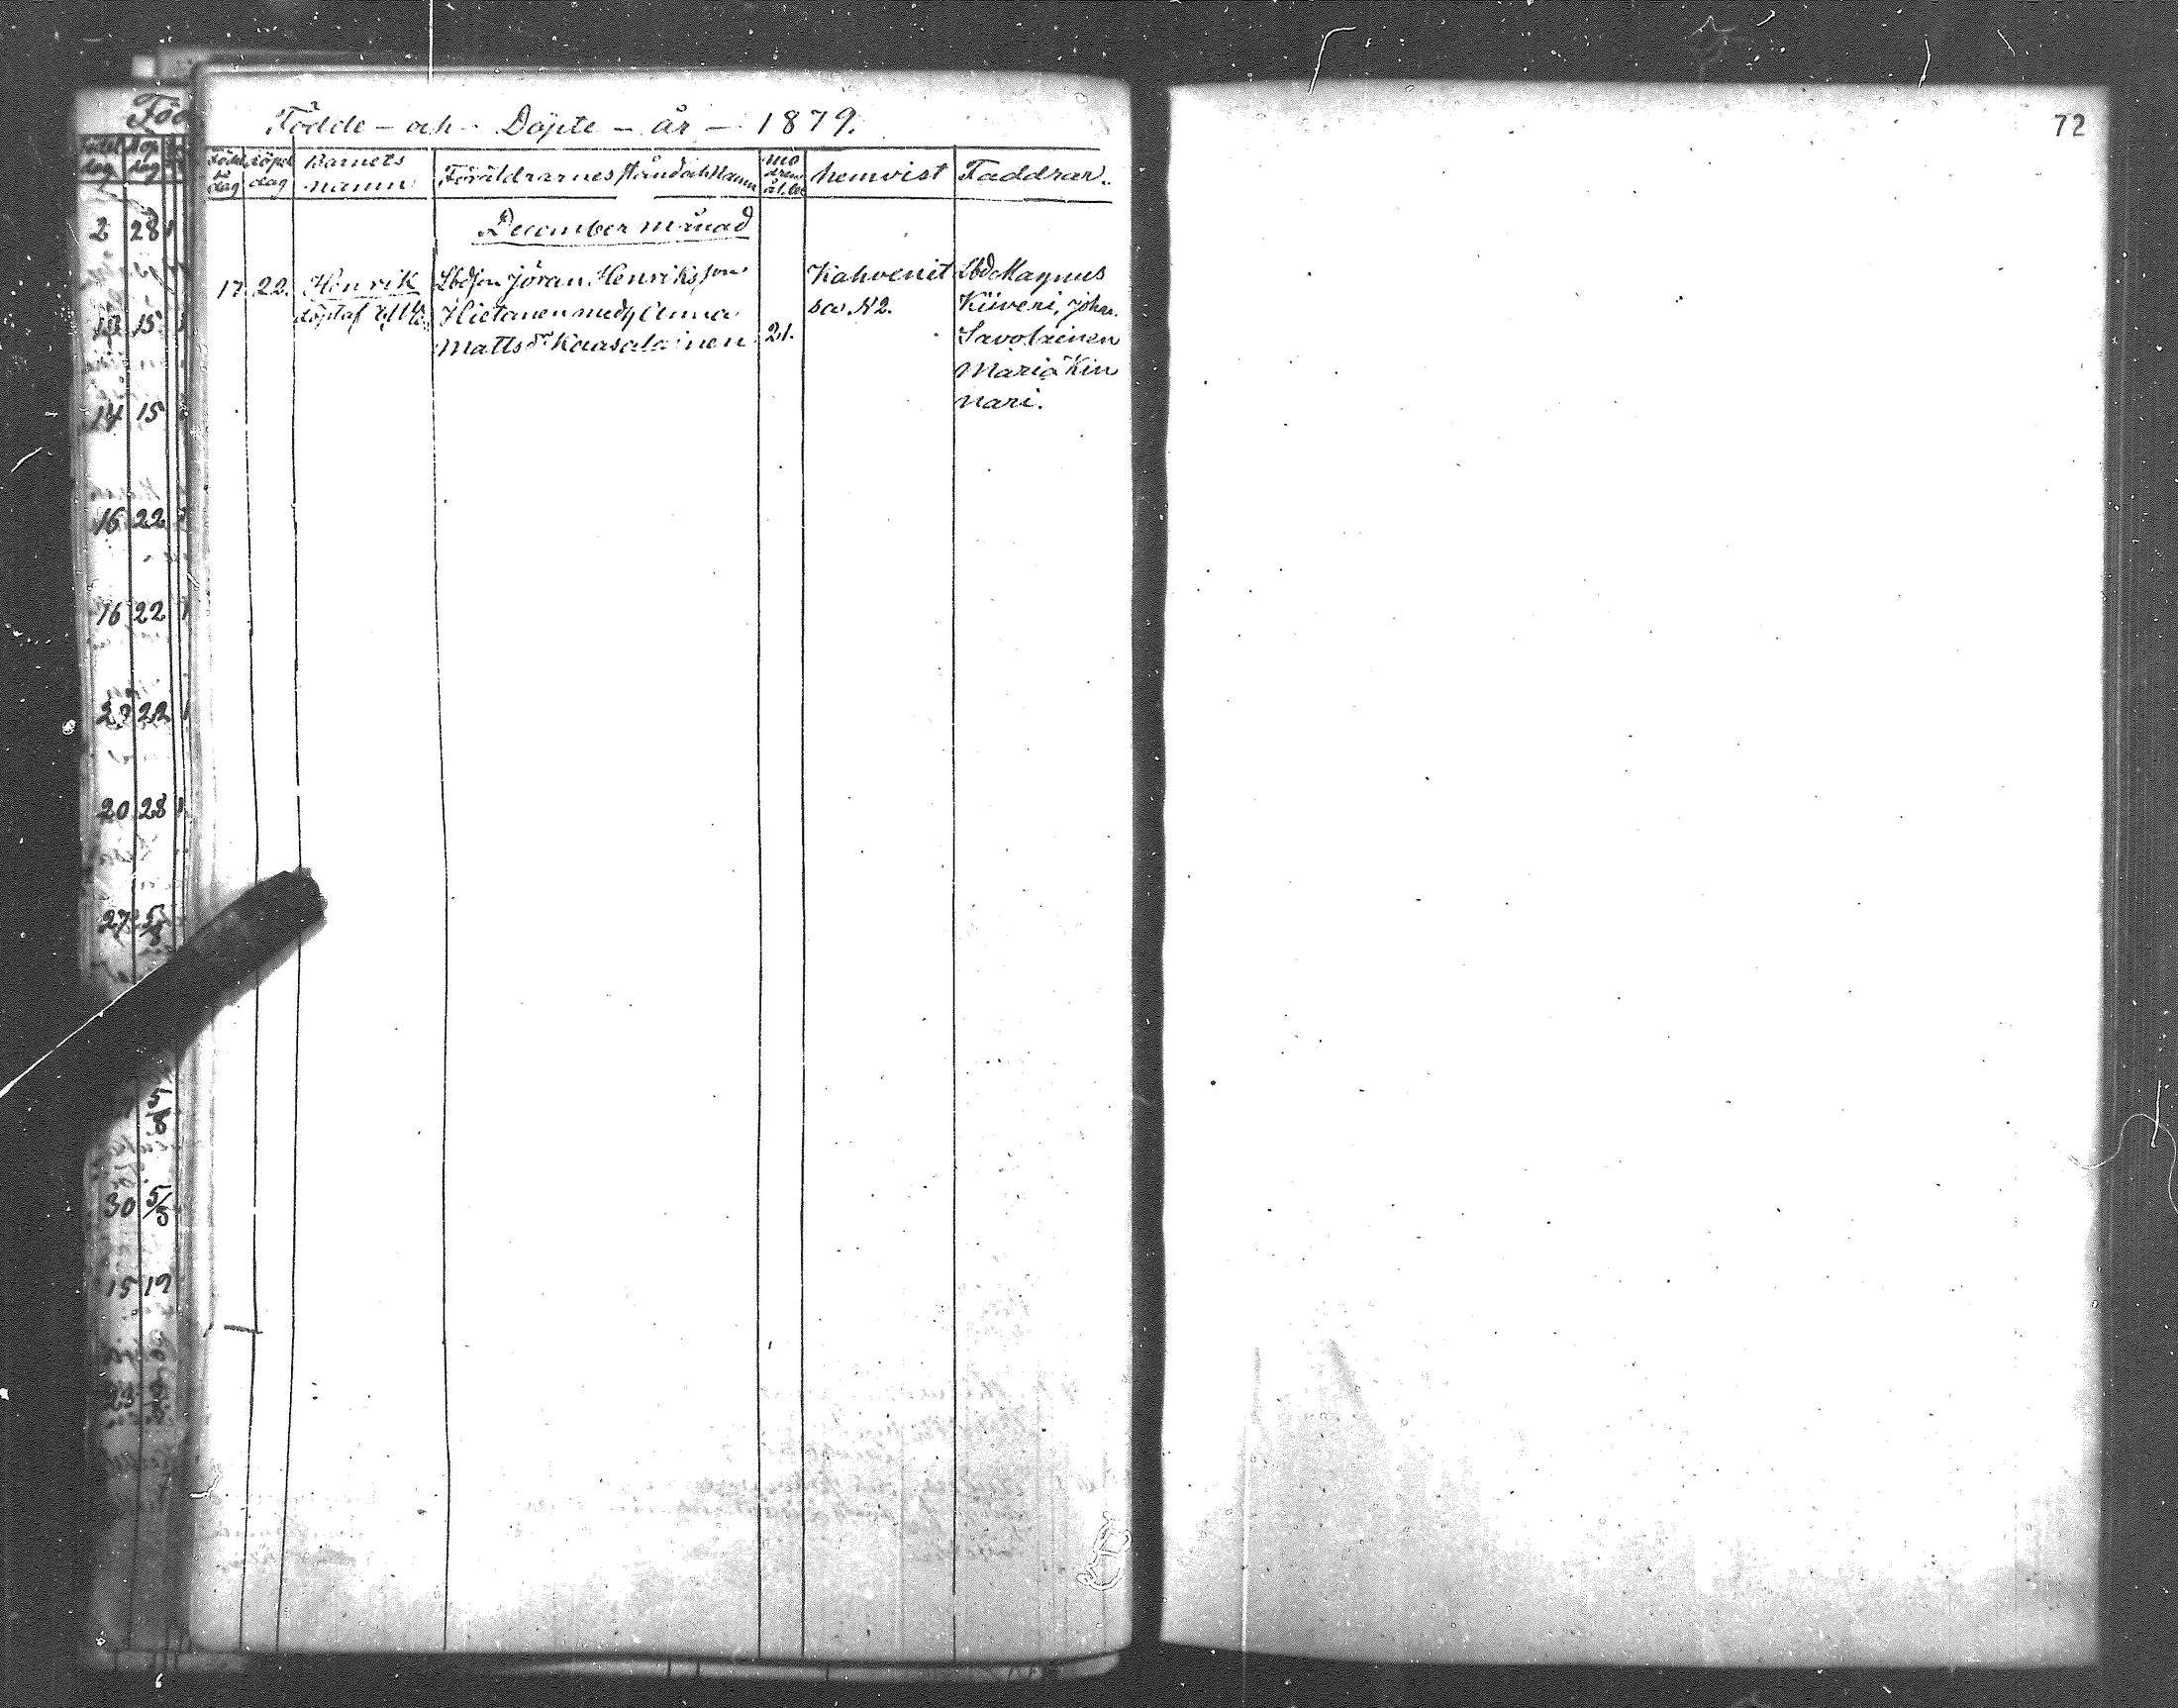 Födde - och - Döpte - år - 1879.
72
Födel
se
dag
döpel
dag
Barnets
namn.
Föräldrarnes stånd och Namn
mo
drens
ålder
hemvist
Faddrar.
December månad
17 22. Henrik
döpt af
Lbdson Jöran Henriksson
Hietanen och Anna
Mattsdr Kaasalainen
21.
Kahvenit
sa. N2.
Lbd Magnus
Kiiveri, Johan
Savolainen
Maria Kin
nari.
Föd
dag
dag
2 28
15
14 15
16 22
16 22
22
20 28
27 5/8
5/8
30 5/5
15 19